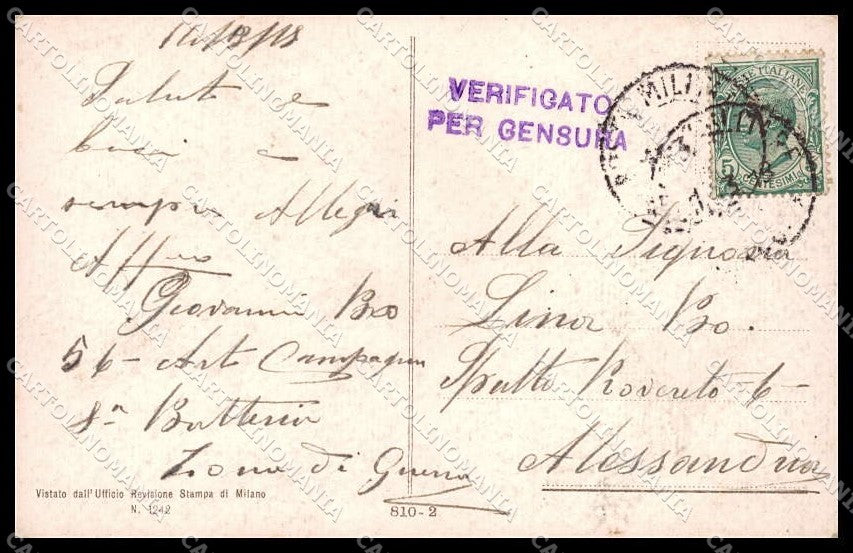 Saluti e
baci e
sempre Allegri
Affmo
Giovanni Bo
56- Art Campagna
8a Batteria
Zona di Guerra
VERIFICATO
PER CENSURA
POSTA MILI
CENTESIMI
Alla Signora
Lina Bo.
Spalto Rovereto 6-
Alessandria
Vistato dall'Ufficio Revisione Stampa di Milano
N. 1242
810-2
CARTOLINOMANIA